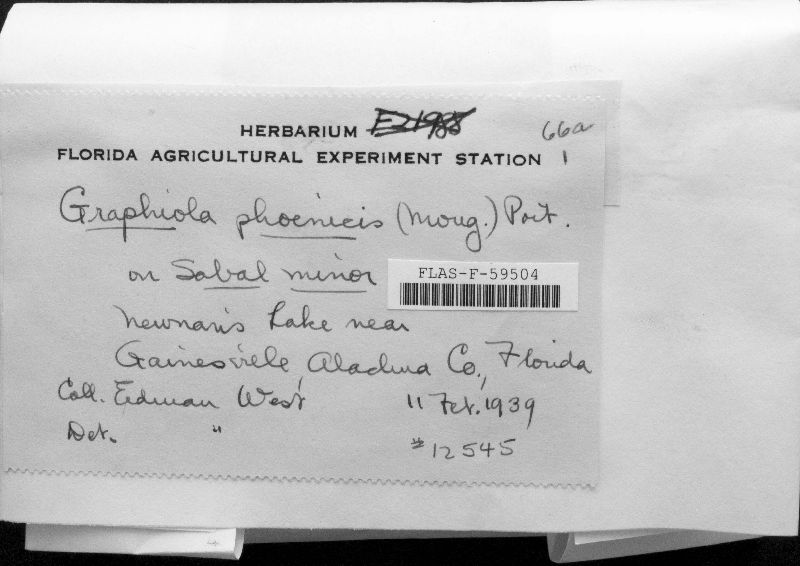 HERBARIUM
66a
FLORIDA AGRICULTURAL EXPERIMENT STATION 1
Graphiola phoenicis (Moug.) Poit.
on Sabal minor
FLAS-F-59504
Newnan's Lake near
Gainesville, Alachua Co., Florida
Coll. Erdman West 11 Feb. 1939
Det. "
#12545